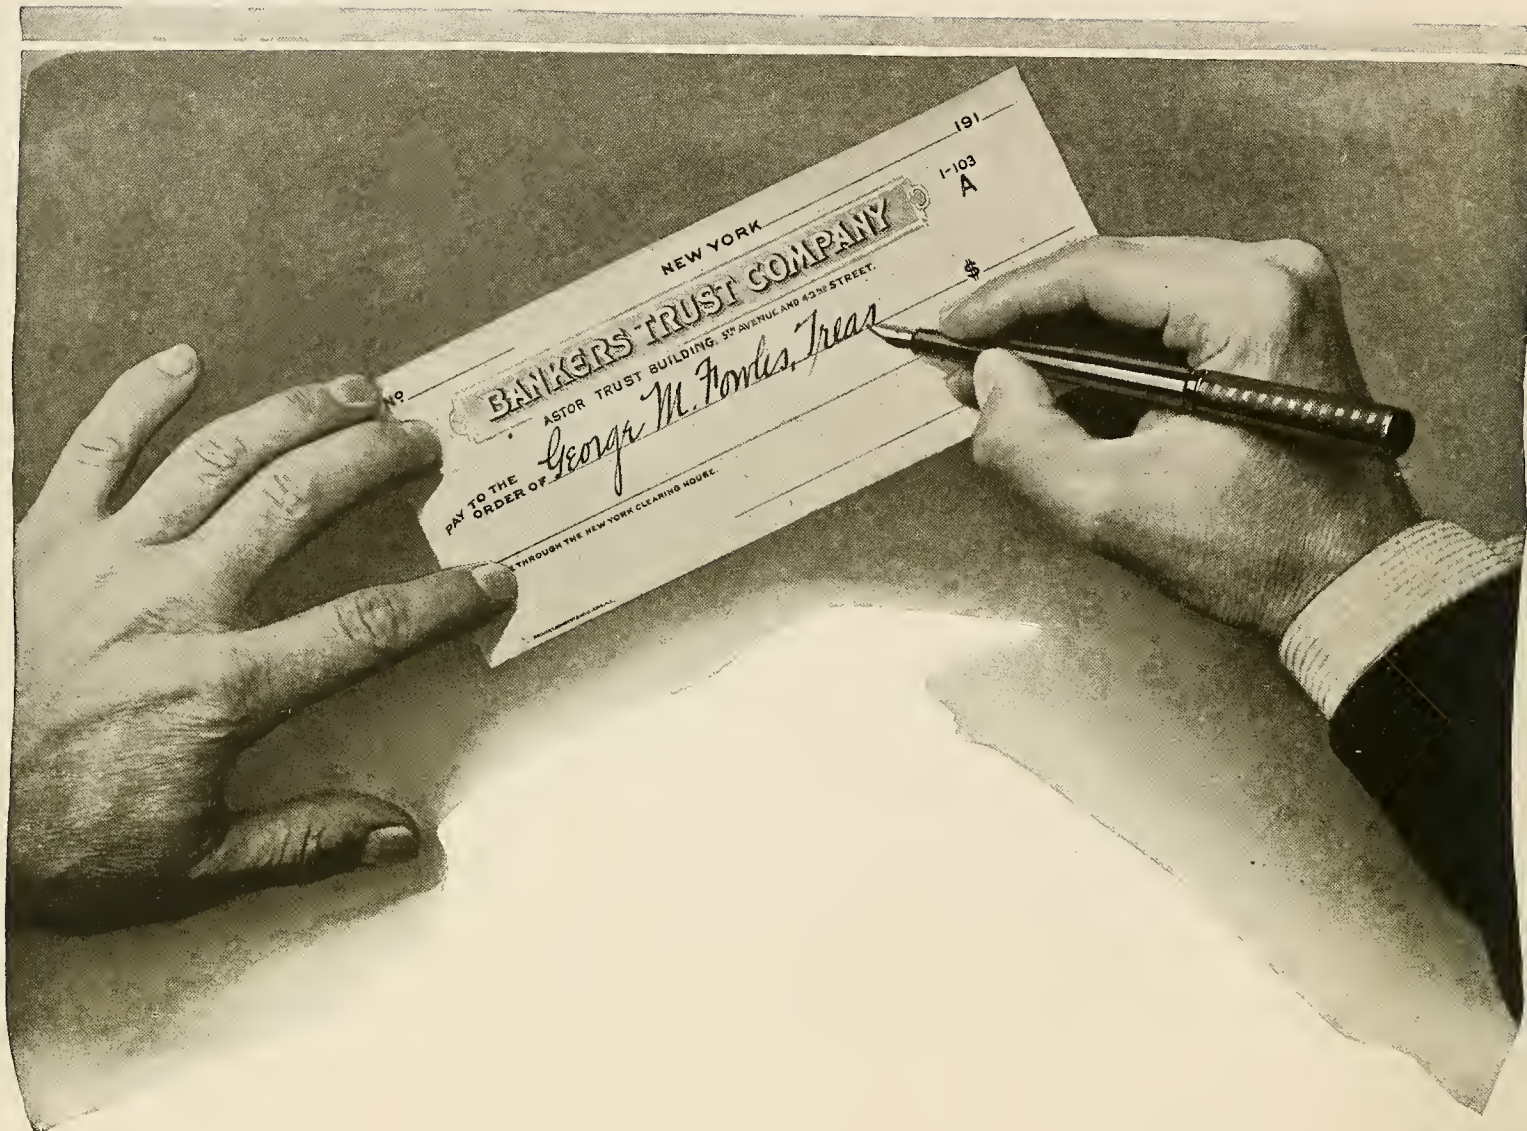 NEW YORK 191
1-103
A
BANKERS TRUST COMPANY
ASTOR TRUST BUILDING, 5TH AVENUE AND 42ND STREET.
Nº
$
PAY TO THE
ORDER OF George M. Fowles, Treas
THROUGH THE NEW YORK CLEARING HOUSE.